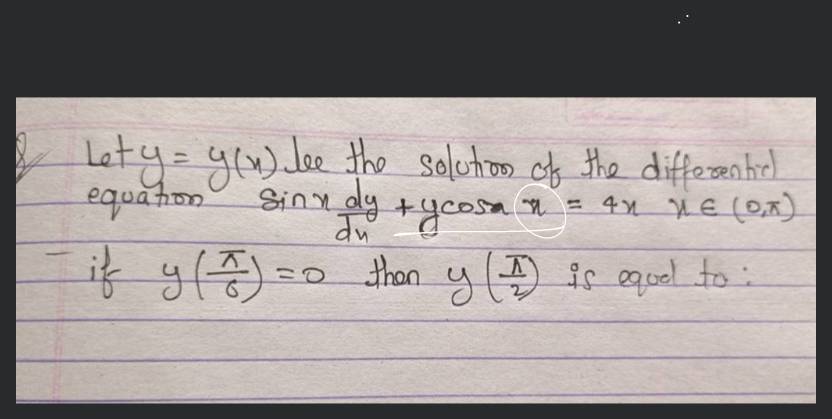 Let y = y(x) be the solution of the differential
equation sin x dy/dx + y cos x = 4x x ∈ (0, π)
if y(π/6) = 0 then y(π/2) is equal to :